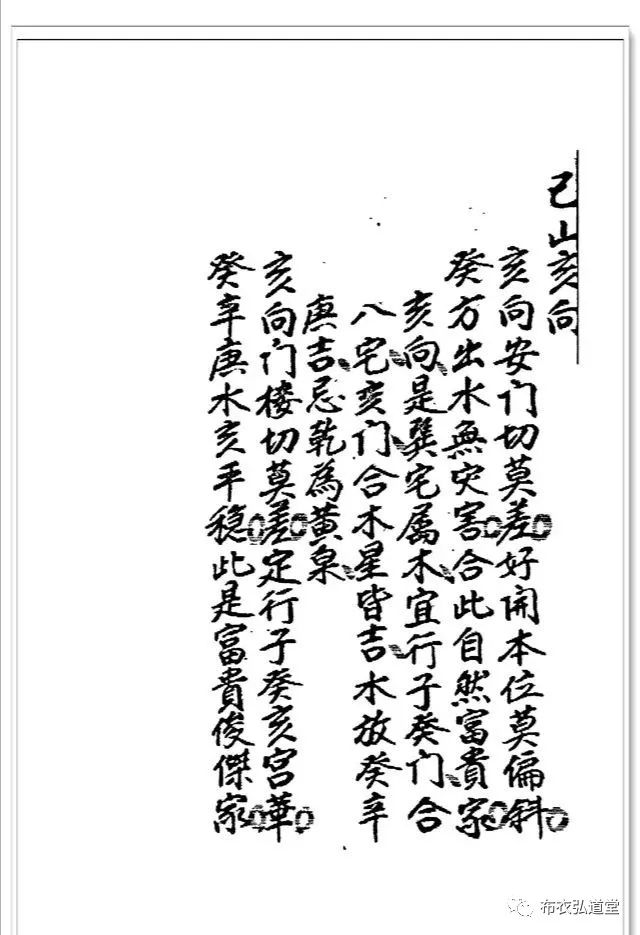 巳山亥向
亥向安门切莫差好開本位莫偏斜
癸方出水無灾害合此自然富貴家
亥向是巽宅属木宜行子癸门合
八宅亥门合木星皆吉水放癸辛
庚吉忌乾為黄泉
亥向门楼切莫差定行子癸亥宫華
癸辛庚水亥平稳此是富貴俊傑家
布衣弘道堂